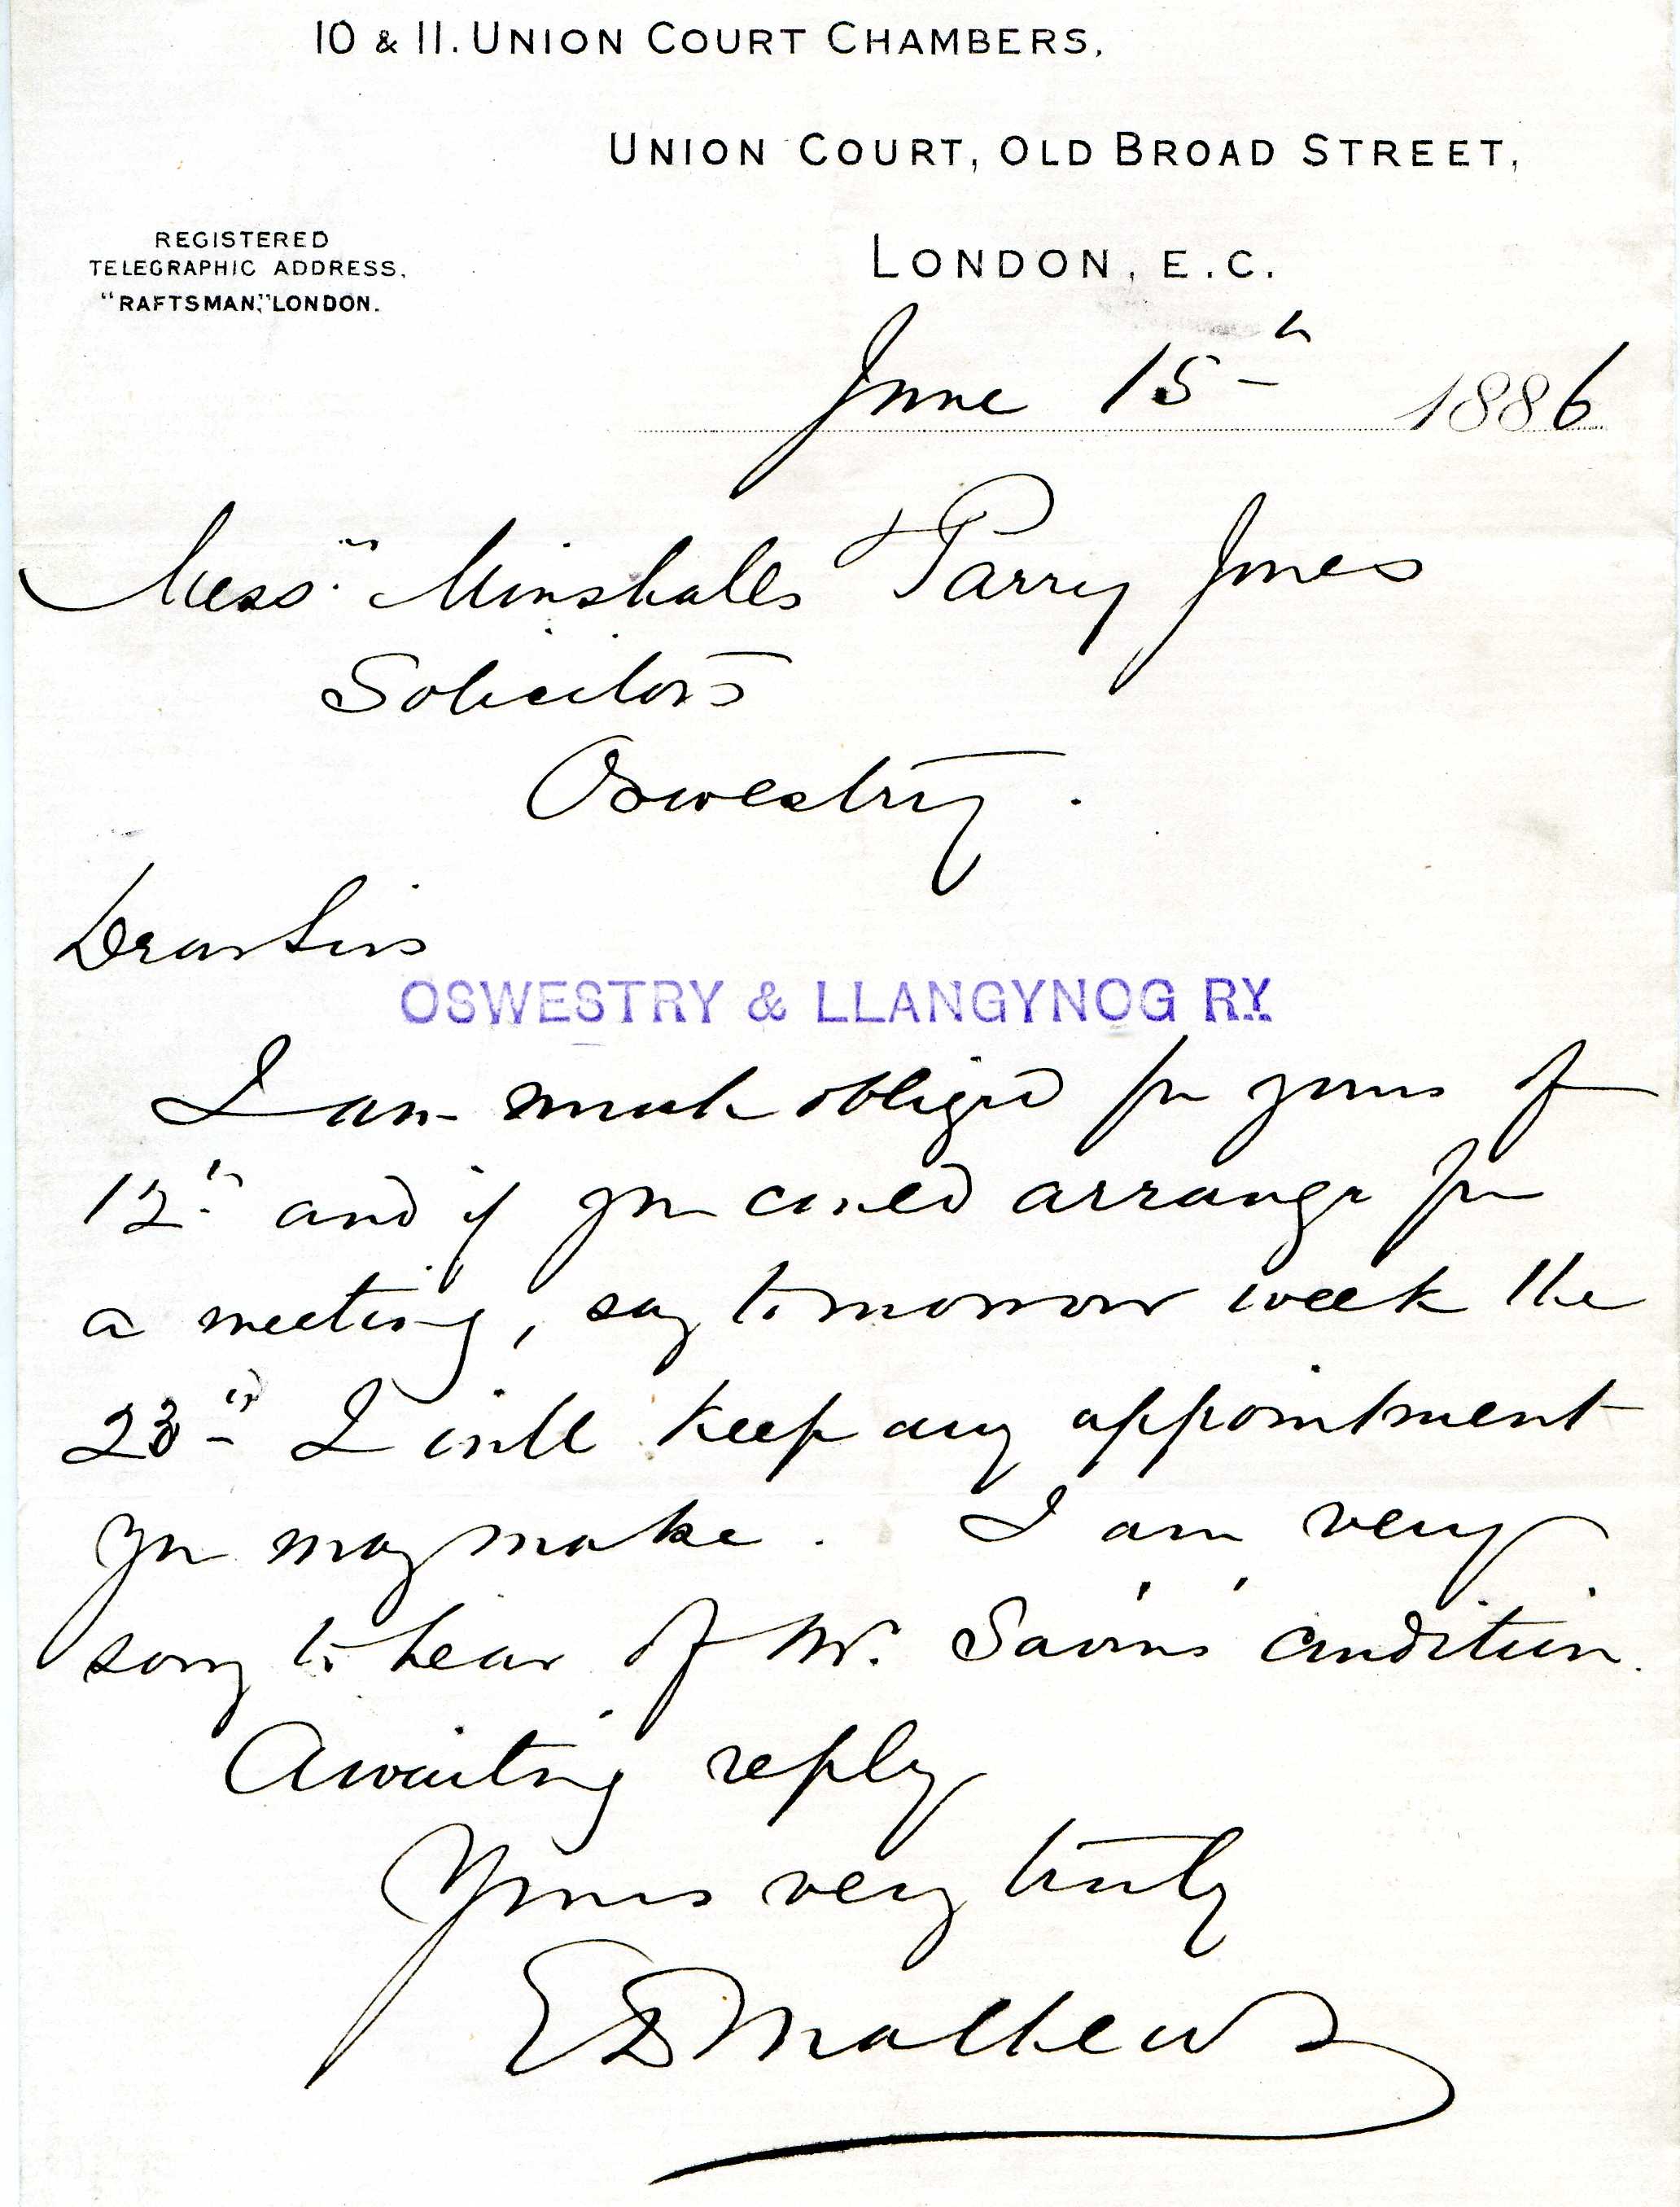 10 & 11. UNION COURT CHAMBERS,
UNION COURT, OLD BROAD STREET,
REGISTERED
TELEGRAPHIC ADDRESS,
"RAFTSMAN," LONDON.
LONDON, E.C.
June 15th 1886
Messrs Minshalls & Parry Jones
Solicitors
Oswestry.
Dear Sirs
OSWESTRY & LLANGYNOG RY.
I am much obliged for yours of
12th and if you could arrange for
a meeting, say tomorrow week the
23rd I will keep any appointment
you may make. I am very
sorry to hear of Mr. Savin's condition.
Awaiting reply
Yours very truly
E D Mathews